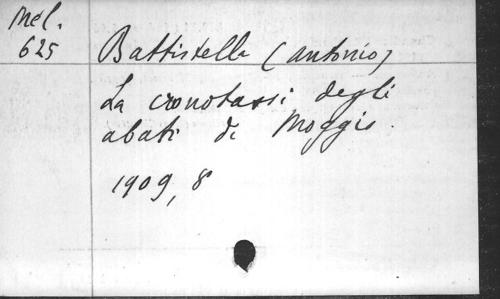 Mél.
625
Battistella (Antonio)
La cronotassi degli
abati di Moggio.
1909, 8